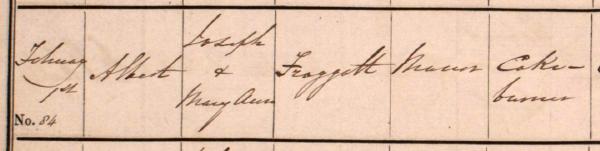 Febuay
1st
No. 84
Albert
Joseph
&
Mary Ann
Froggett
Manor
Coke-
burner